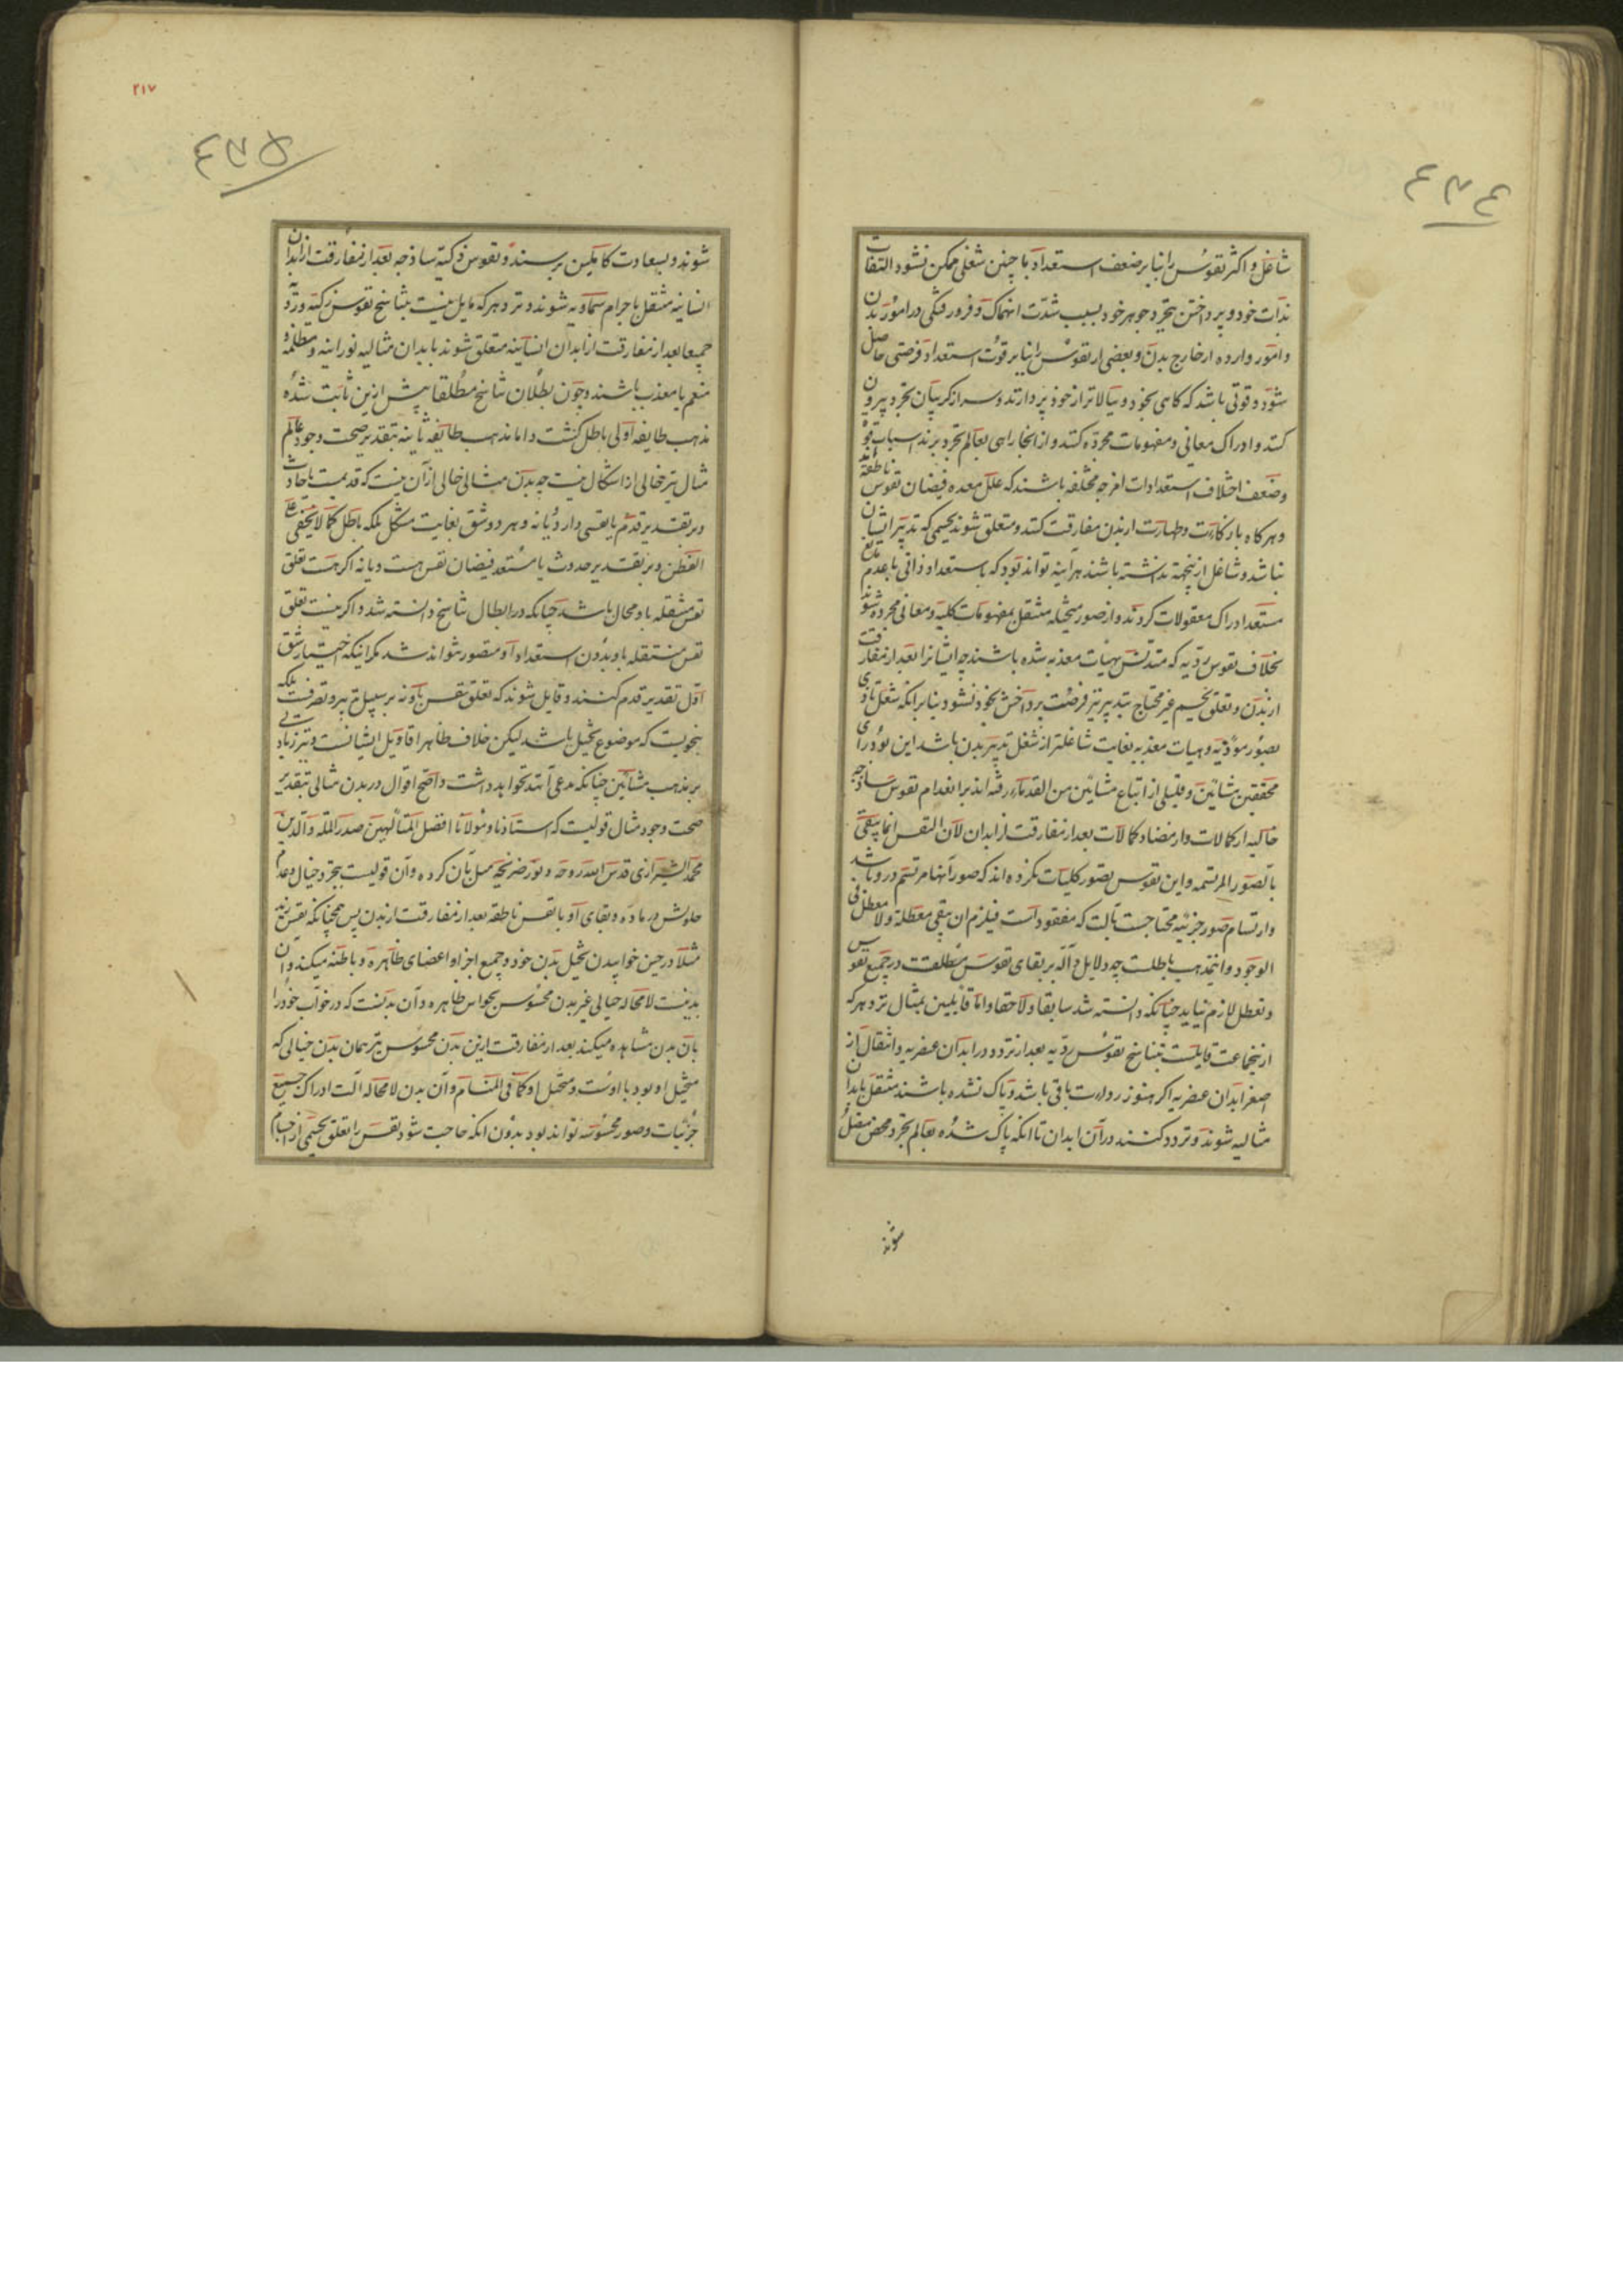 ٤٣٤
شاغل و اکثر نفوس را بنا بر ضعف استعداد با چنین شغلی ممکن نشود التفات
بذات خود و پرداختن بتجرد جوهر خود بسبب شدت انهماک و فرورفتگی در امور بدن
و امور وارده از خارج بدن و بعضی از نفوس را بنا بر قوت استعداد فرصتی حاصل
شود و قوتی باشد که کاهی بخود و ببالاتر از خود پردازند و سر از کریبان تجرد بیرون
کنند و ادراک معانی و مفهومات مجرده کنند و از انجا راهی بعالم تجرد برند اسباب قوة
و ضعف اختلاف استعدادات امزجه مختلفه باشند که علل معده فیضان نفوس ناطقه‌اند
و هرکاه با زکاوت و طهارت از بدن مفارقت کنند و متعلق شوند بجسمی که تدبیر ایشان
نباشد و شاغل ازینجهة نداشته باشند هرآینه تواند بود که باستعداد ذاتی با عدم مانع
مستعد ادراک معقولات کردند و از صور متخیله منتقل بمفهومات کلیه و معانی مجرده شوند
بخلاف نفوس ردیه که متدنس بهیات معذبه شده باشند چه ایشانرا بعد از مفارقت
از بدن و تعلق بجسم غیر محتاج بتدبیر نیز فرصت پرداختن بخود نشود بنا برانکه شغل تاذی
بصور موذیه و هیات معذبه بغایت شاغلتر از شغل تدبیر بدن باشد این بود رای
محققین مشائین و قلیلی از اتباع مشائین من القدماء رفته‌اند بر انعدام نفوس ساذجه
خالیه از کمالات و از مضاد کمالات بعد از مفارقت از ابدان لان النفس انما یبقی
بالصور المرتسمه و این نفوس تصور کلیات نکرده‌اند که صور آنها مرتسم در و باشد
و ارتسام صور جزئیه محتاجست بآلت که مفقود است فیلزم ان یبقی معطلة و لا معطل فی
الوجود و اینمذهب باطلست چه دلایل داله بر بقای نفوس مطلقست در جمیع نفوس
و تعطل لازم نیاید چنانکه دانسته شد سابقا و لاحقا و اما قایلین بمثال نزد هر که
ازینجماعت قایلست بتناسخ نفوس ردیه بعد از تردد در ابدان عنصریه و انتقال از
اصغر ابدان عنصریه اکر هنوز رداءت باقی باشد و پاک نشده باشند منتقل بابدان
مثالیه شوند و تردد کنند در آن ابدان تا انکه پاک شده بعالم تجرد محض متصل
شوند
٢١٧
٤٣٥
شوند و بسعادت کاملین برسند و نفوس زکیه ساذجه بعد از مفارقت از ابدان
انسانیه منتقل باجرام سماویه شوند و نزد هر که مایل نیست بتناسخ نفوس زکیه و ردیه
جمیعا بعد از مفارقت از ابدان انسانیه متعلق شوند بابدان مثالیه نورانیه و مظلمه و
منعم یا معذب باشند و چون بطلان تناسخ مطلقا پیش ازین ثابت شده
مذهب طایفه اولی باطل کشت و اما مذهب طایفه ثانیه بتقدیر صحت وجود عالم
مثال نیز خالی از اشکال نیست چه بدن مثالی خالی ازآن نیست که قدیمست یا حادث
و بر تقدیر قدم یا نفسی دارد یا نه و هر دو شق بغایت مشکل بلکه باطل کما لا یخفی علی
الفطن و بر تقدیر حدوث یا مستعد فیضان نفس هست و یا نه اکر هست تعلق
نفس منتقله باو محال باشد چنانکه در ابطال تناسخ دانسته شد و اکر نیست تعلق
نفس منتقله باو بدون استعداد او متصور نتواند شد مکر اینکه اختیار شق
اول تقدیر قدم کنند و قایل شوند که تعلق نفس باو نه بر سبیل تدبیر و تصرفست بلکه
بنحویست که موضوع تخیل باشد لیکن خلاف ظاهر اقاویل ایشانست و نیز زیادتی
بر مذهب مشائین چنانکه مدعی آنند نخواهد داشت و اصح اقوال در بدن مثالی بتقدیر
صحت وجود مثال قولیست که استاذنا و مولانا افضل المتألهین صدر الملة و الدین
محمد الشیرازی قدس الله روحه و نور ضریحه میل بآن کرده و آن قولیست بتجرد خیال و عدم
حلولش در ماده و بقای او با نفس ناطقه بعد از مفارقت از بدن پس همچنانکه نفس زید
مثلا در حین خوابیدن تخیل بدن خود و جمیع اجزا و اعضای ظاهره و باطنه میکند و آن
بدنیست لامحاله خیالی غیر بدن محسوس بحواس ظاهره و آن بدنست که در خواب خود را
بآن بدن مشاهده میکند بعد از مفارقت ازین بدن محسوس نیز همان بدن خیالی که
متخیل او بود با اوست و متخیل او کما فی المنام و آن بدن لامحاله آلت ادراک جمیع
جزئیات و صور محسوسه تواند بود بدون انکه حاجت شود نفس را تعلق بجسمی از اجسام